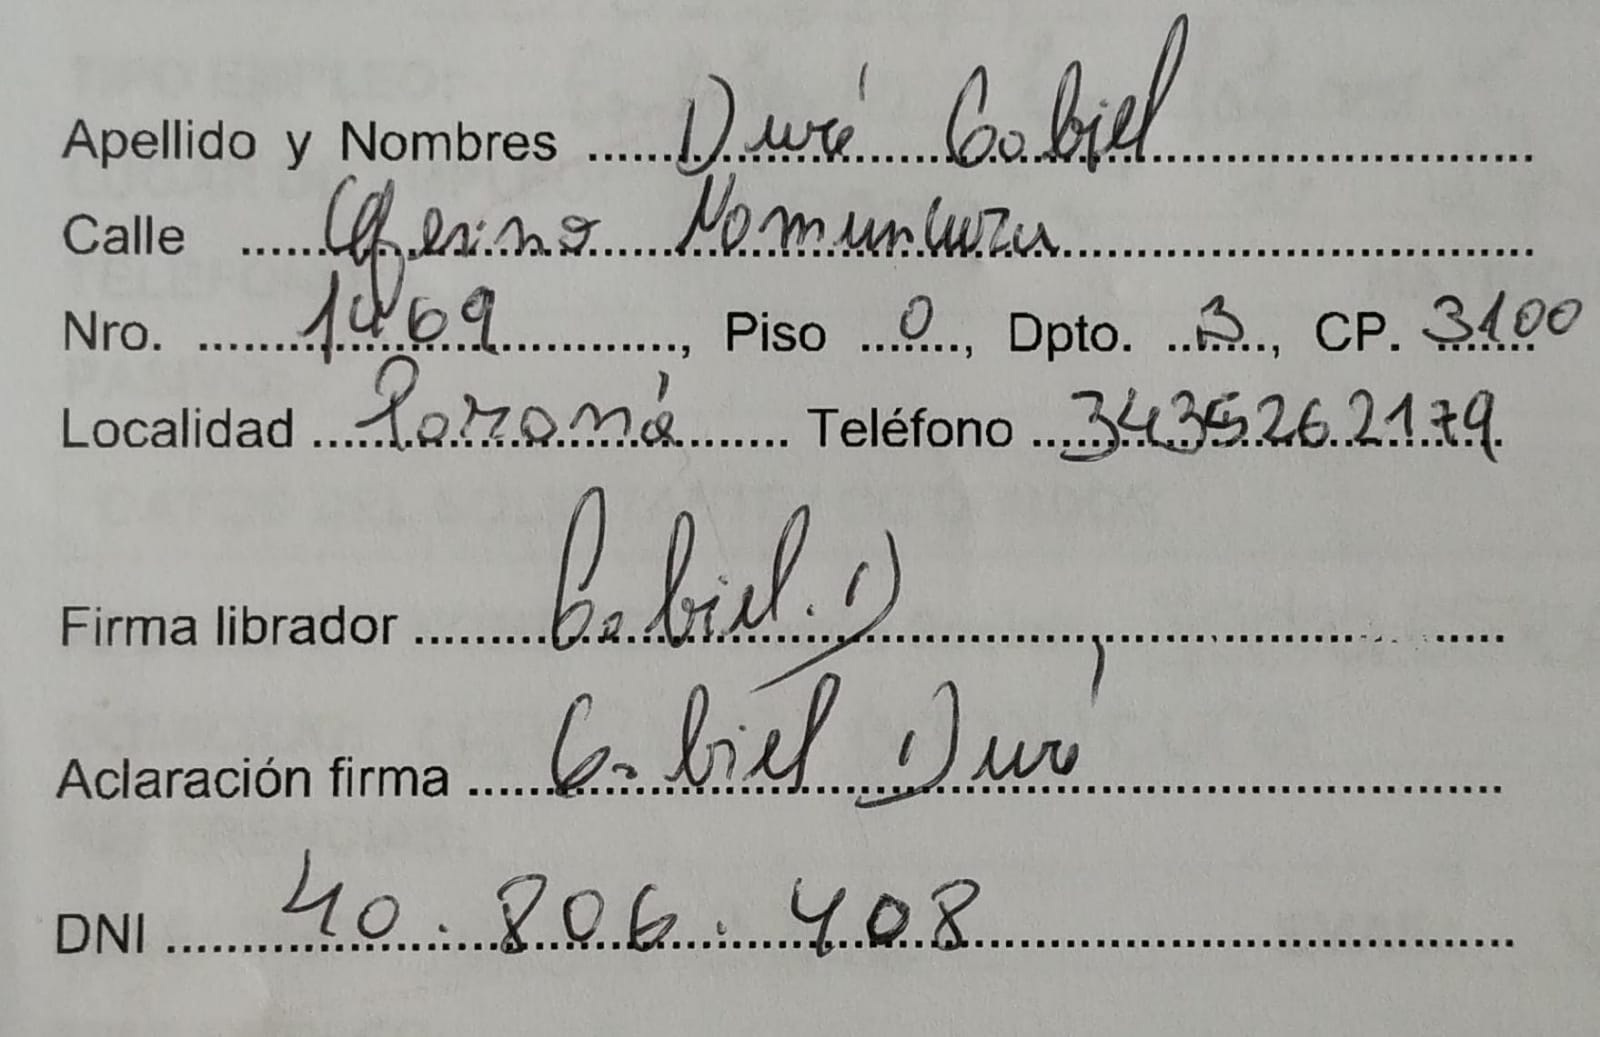 Apellido y Nombres Duré Gabiel
Calle Ceferino Namuncura
Nro. 1469, Piso 0, Dpto. B, CP. 3100
Localidad Paraná Teléfono 3435262179
Firma librador Gabiel. D
Aclaración firma Gabiel Duré
DNI 40.806.408